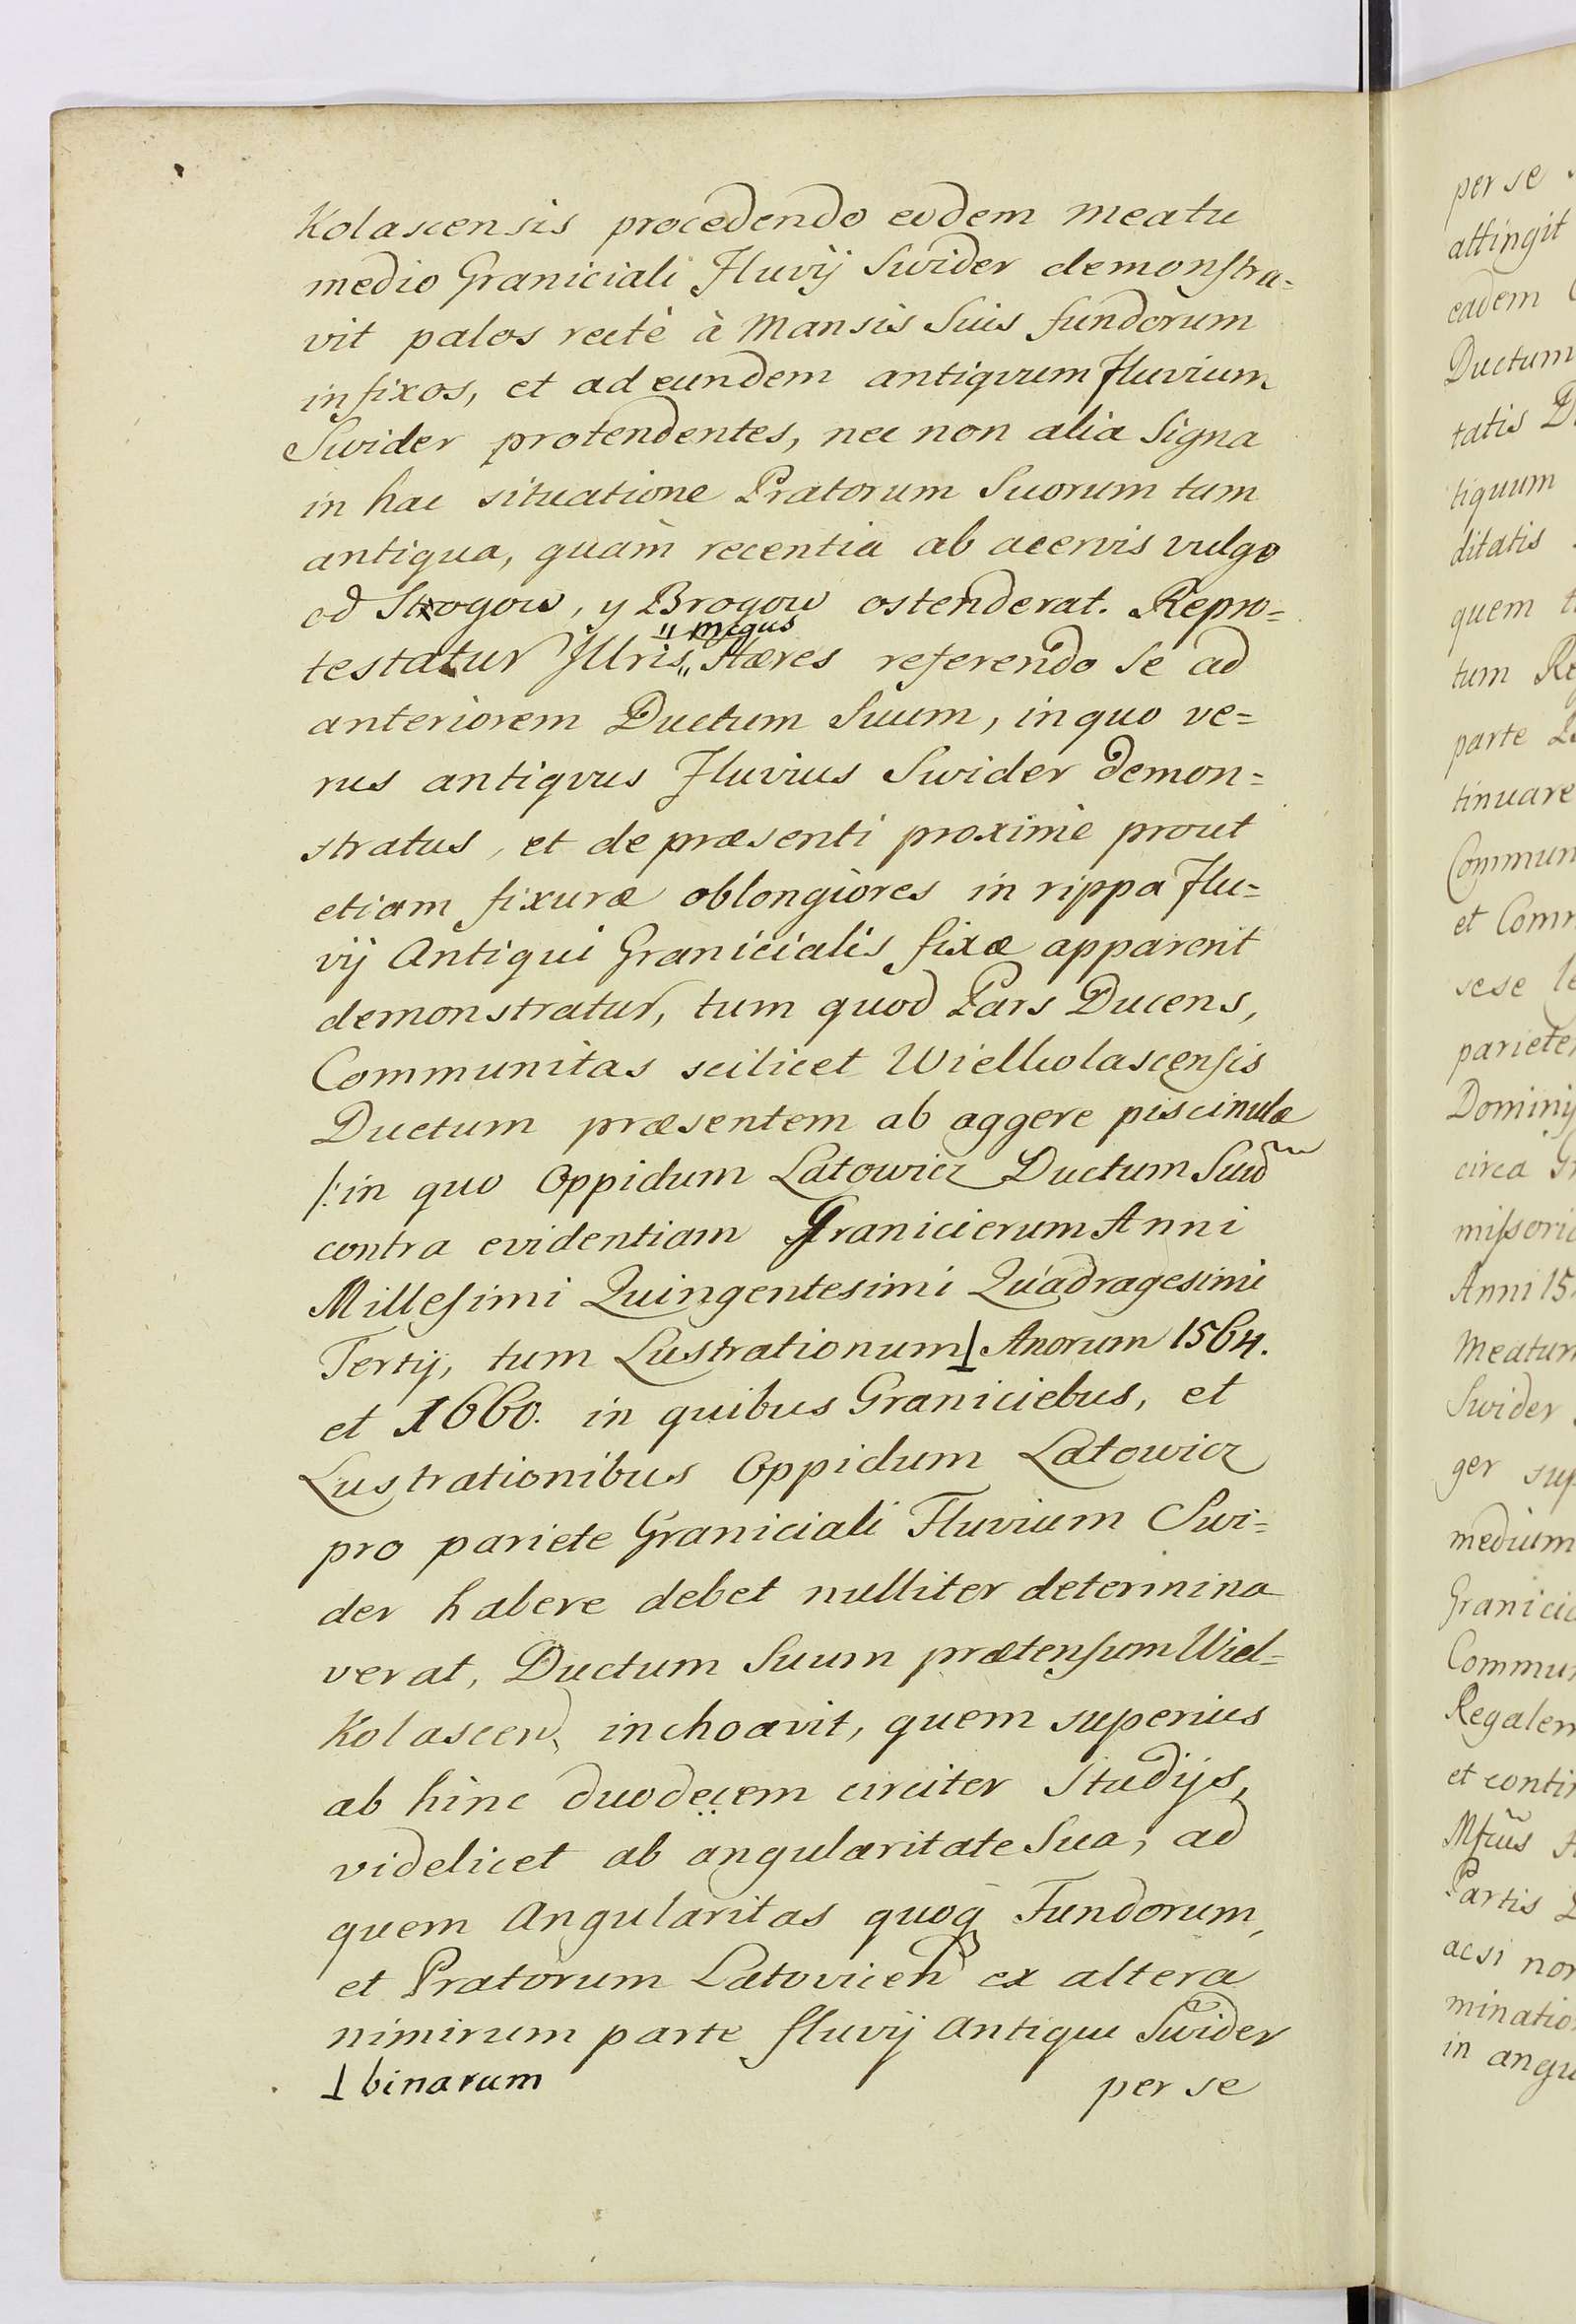 Kolascensis procedendo eodem meatu
medio Graniciali Fluvij Swider demonstra=
vit palos rectè à Mansis Suis fundorum
infixos, et ad eundem antiqvum Fluvium
Swider protendentes, nec non alia Signa
in hac situatione Pratorum Suorum tam
antiqua, quàm recentia ab acervis vulgo
od Stogow, y Brogow ostenderat. Repro=
" Mgcus
testatur Jllris " Hæres referendo se ad
anteriorem Ductum Suum, in quo ve=
rus antiqvus Fluvius Swider demon=
stratus, et de præsenti proximè prout
etiam fixuræ oblongiores in rippa Flu=
vij Antiqui Granicialis fixæ apparent
demonstratur, tum quod Pars Ducens,
Communitas scilicet Wielkolascensis
Ductum præsentem ab aggere piscinulæ
/: in quo Oppidum Latowicz Ductum Suũ
contra evidentiam Granicierum Anni
Millesimi Quingentesimi Quadragesimi
Tertij, tum Lustrationum ⊥ Anorum 1564.
et 1660. in quibus Graniciebus, et
Lustrationibus Oppidum Latowicz
pro pariete Graniciali Fluvium Swi=
der habere debet nulliter determina
verat, Ductum Suum prætensum Wiel=
Kolascen inchoavit, quem superius
ab hinc duodecem circiter Studijs,
videlicet ab angularitate Sua, ad
quem Angularitas quoq Fundorum,
et Pratorum Latovicen ex altera
nimirum parte fluvij Antiqui Swider
⊥ binarum
per se
per se
attingit
eadem
Ductum
tatis
tiquum
ditatis
quem
tum
parte
tinuare
Commun
et Comm
sese
pariete
Dominij
circa
missori
Anni 15
Meatum
Swider
ger sup
medium
Granici
Commu
Regalem
et conti
Partis
acsi non
minatio
in angu